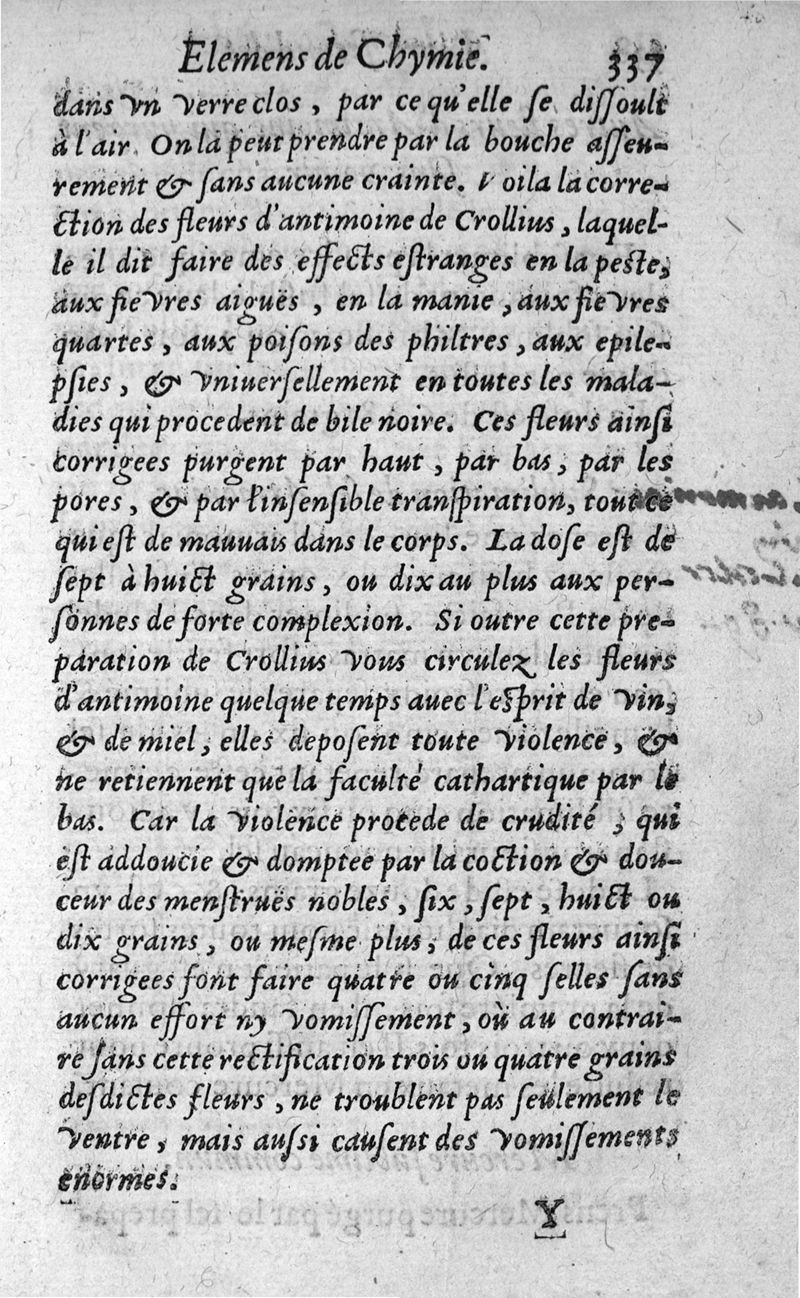 Elemens de Chymie. 337
dans vn verre clos, par ce qu'elle se dissoult
à l'air. On la peut prendre par la bouche asseu-
rement & sans aucune crainte. Voila la corre-
ction des fleurs d'antimoine de Crollius, laquel-
le il dit faire des effects estranges en la peste,
aux fievres aiguës, en la manie, aux fievres
quartes, aux poisons des philtres, aux epile-
psies, & vniuersellement en toutes les mala-
dies qui procedent de bile noire. Ces fleurs ainsi
corrigees purgent par haut, par bas, par les
pores, & par l'insensible transpiration, tout ce
qui est de mauuais dans le corps. La dose est de
sept à huict grains, ou dix au plus aux per-
sonnes de forte complexion. Si outre cette pre-
paration de Crollius vous circulez les fleurs
d'antimoine quelque temps auec l'esprit de vin,
& de miel, elles deposent toute violence, &
ne retiennent que la faculté cathartique par le
bas. Car la violence procede de crudité, qui
est addoucie & domptee par la coction & dou-
ceur des menstruës nobles, six, sept, huict ou
dix grains, ou mesme plus, de ces fleurs ainsi
corrigees font faire quatre ou cinq selles sans
aucun effort ny vomissement, où au contrai-
re sans cette rectification trois ou quatre grains
desdictes fleurs, ne troublent pas seulement le
ventre, mais aussi causent des vomissements
enormes.
Y